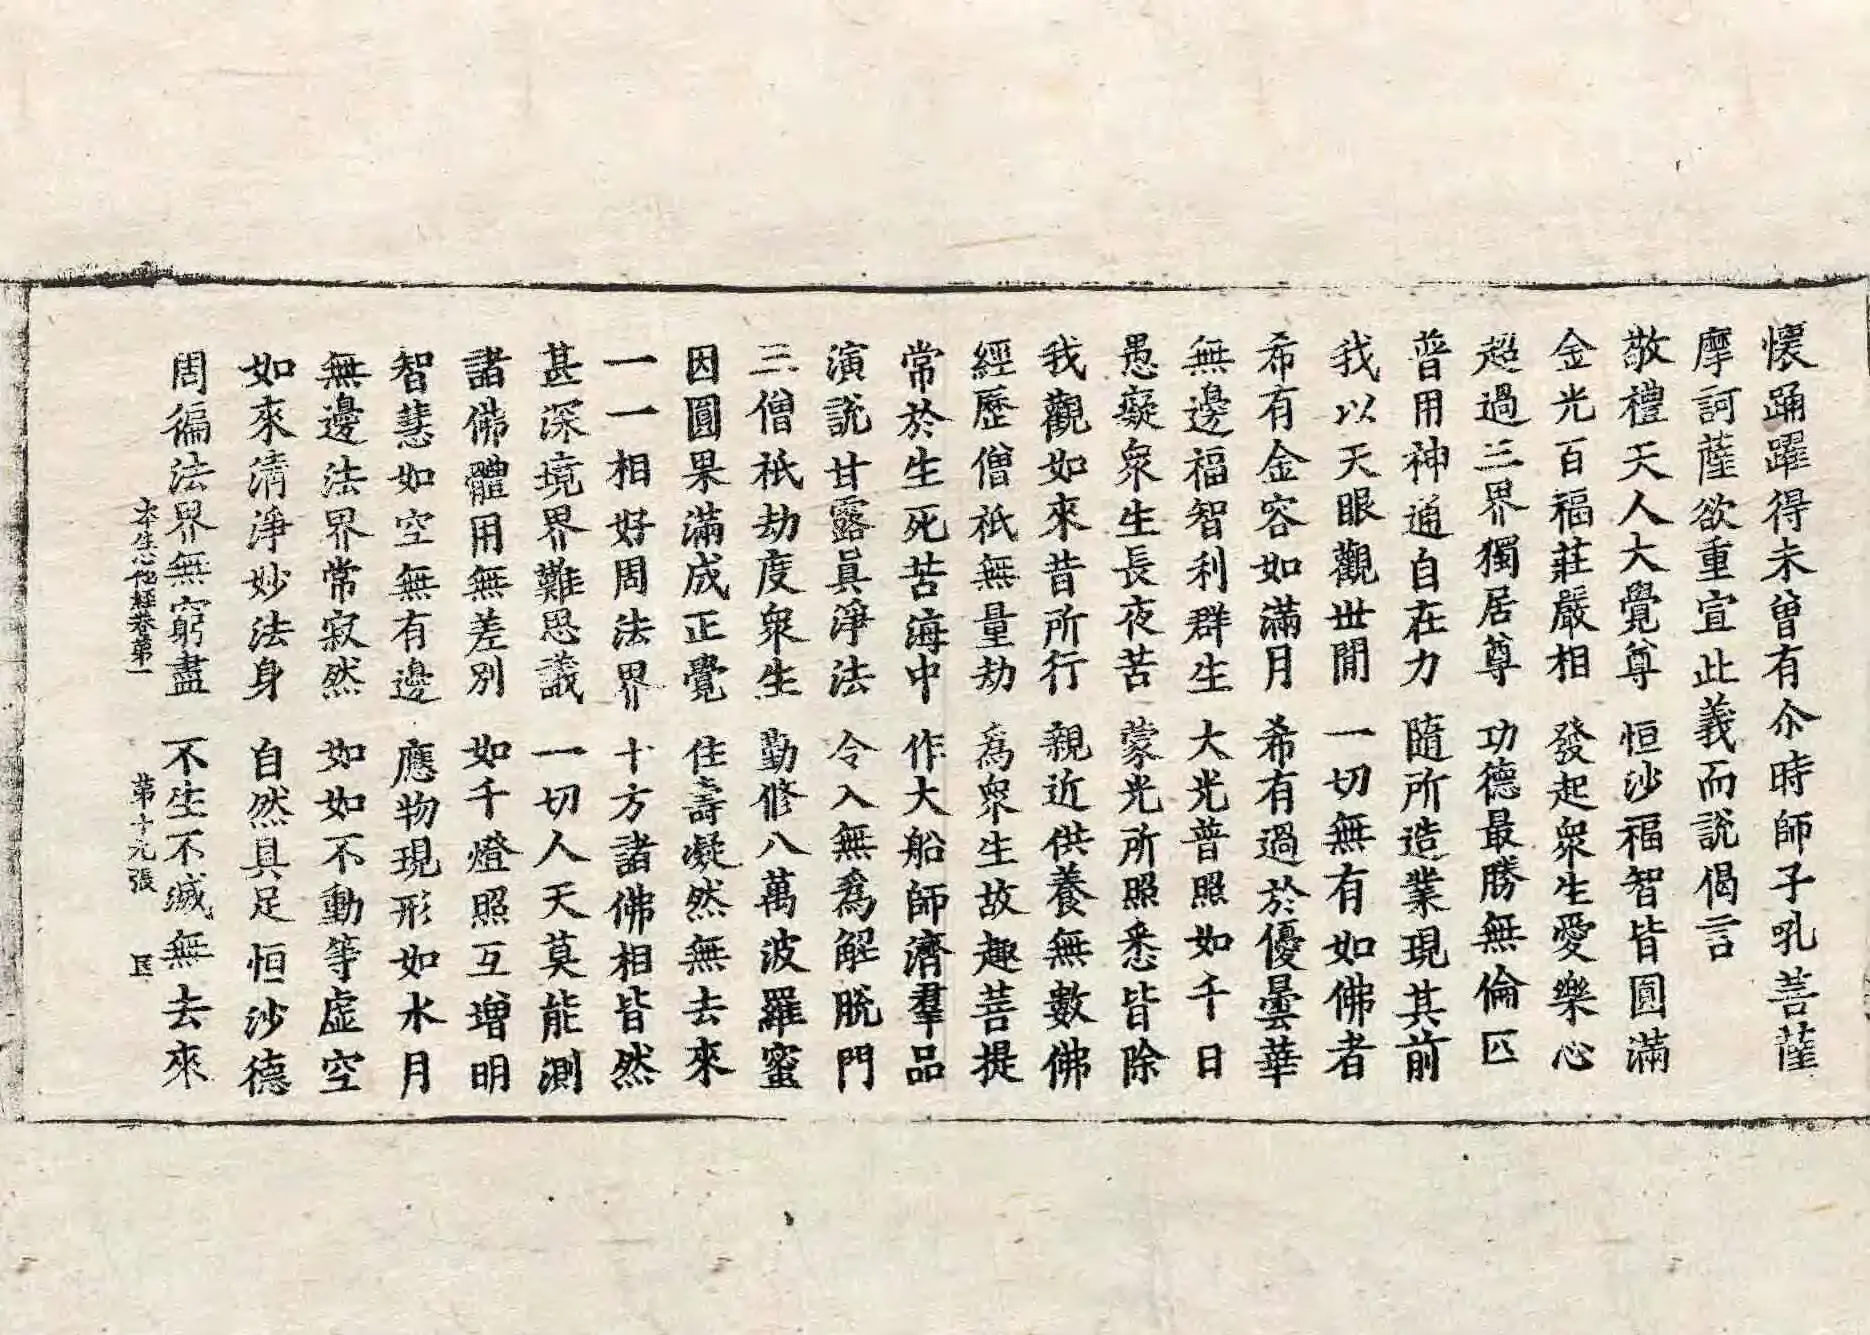 懷踊躍得未曾有尒時師子吼菩薩
摩訶薩欲重宣此義而說偈言
敬禮天人大覺尊　恒沙福智皆圓滿
金光百福莊嚴相　發起衆生愛樂心
超過三界獨居尊　功德最勝無倫匹
普用神通自在力　隨所造業現其前
我以天眼觀世間　一切無有如佛者
希有金容如滿月　希有過於優曇華
無邊福智利群生　大光普照如千日
愚癡衆生長夜苦　蒙光所照悉皆除
我觀如來昔所行　親近供養無數佛
經歷僧祇無量劫　爲衆生故趣菩提
常於生死苦海中　作大船師濟羣品
演說甘露真淨法　令入無爲解脫門
三僧祇劫度衆生　勤修八萬波羅蜜
因圓果滿成正覺　住壽凝然無去來
一一相好周法界　十方諸佛相皆然
甚深境界難思議　一切人天莫能測
諸佛體用無差別　如千燈照互增明
智慧如空無有邊　應物現形如水月
無邊法界常寂然　如如不動等虛空
如來清淨妙法身　自然具足恒沙德
周徧法界無窮盡　不生不滅無去來
本生心地經卷第一　第十九張